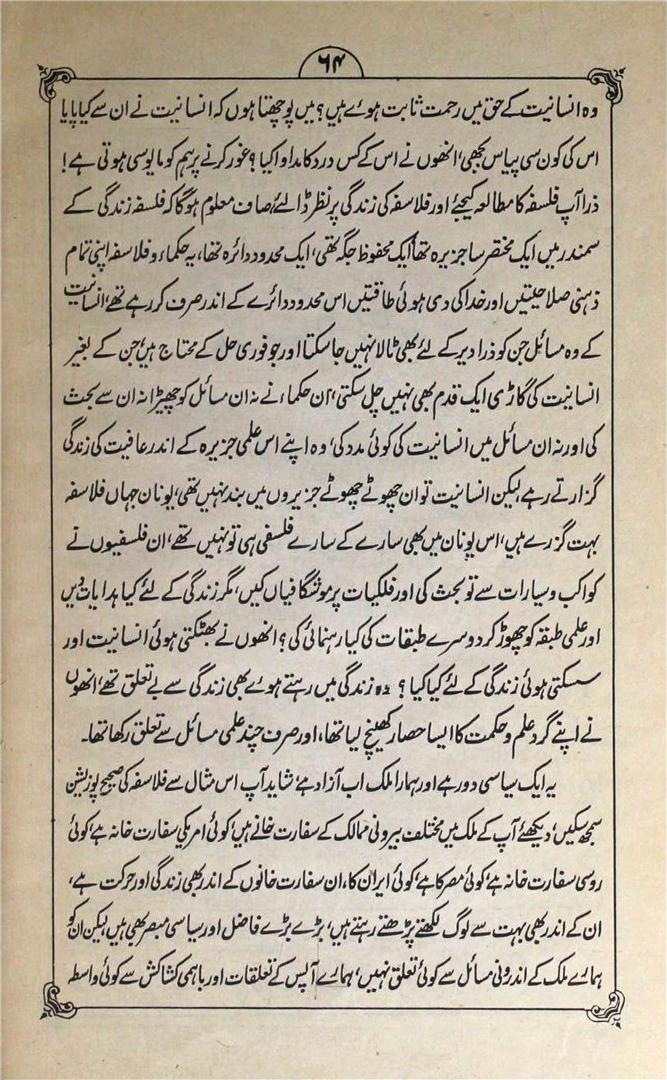 ۶۴
وہ انسانیت کے حق میں رحمت ثابت ہوئے ہیں؟ میں پوچھتا ہوں کہ انسانیت نے ان سے کیا پایا
اس کی کون سی پیاس بجھی، انھوں نے اس کے کس درد کا مداوا کیا؟ غور کرنے پر ہم کو مایوسی ہوتی ہے!
ذرا آپ فلسفہ کا مطالعہ کیجئے اور فلاسفہ کی زندگی پر نظر ڈالئے، صاف معلوم ہوگا کہ فلسفہ زندگی کے
سمندر میں ایک مختصر سا جزیرہ تھا، ایک محفوظ جگہ تھی، ایک محدود دائرہ تھا، یہ حکماء و فلاسفہ اپنی تمام
ذہنی صلاحیتیں اور خدا کی دی ہوئی طاقتیں اس محدود دائرے کے اندر صرف کر رہے تھے، انسانیت
کے وہ مسائل جن کو ذرا دیر کے لئے بھی ٹالا نہیں جا سکتا اور جو فوری حل کے محتاج ہیں، جن کے بغیر
انسانیت کی گاڑی ایک قدم بھی نہیں چل سکتی، ان حکماء نے نہ ان مسائل کو چھیڑا نہ ان سے بحث
کی اور نہ ان مسائل میں انسانیت کی کوئی مدد کی، وہ اپنے اس علمی جزیرہ کے اندر عافیت کی زندگی
گزارتے رہے لیکن انسانیت تو ان چھوٹے چھوٹے جزیروں میں بند نہیں تھی، یونان جہاں فلاسفہ
بہت گزرے ہیں، اس یونان میں بھی سارے کے سارے فلسفی ہی تو نہیں تھے، ان فلسفیوں نے
کواکب و سیارات سے تو بحث کی اور فلکیات پر موشگافیاں کیں، مگر زندگی کے لئے کیا ہدایات دیں
اور علمی طبقہ کو چھوڑ کر دوسرے طبقات کی کیا رہنمائی کی؟ انھوں نے بھٹکتی ہوئی انسانیت اور
سسکتی ہوئی زندگی کے لئے کیا کیا؟ وہ زندگی میں رہتے ہوئے بھی زندگی سے بے تعلق تھے، انھوں
نے اپنے گرد علم و حکمت کا ایسا حصار کھینچ لیا تھا، اور صرف چند علمی مسائل سے تعلق رکھا تھا۔
یہ ایک سیاسی دور ہے اور ہمارا ملک اب آزاد ہے، شاید آپ اس مثال سے فلاسفہ کی صحیح پوزیشن
سمجھ سکیں، دیکھئے آپ کے ملک میں مختلف بیرونی ممالک کے سفارت خانے ہیں، کوئی امریکی سفارت خانہ ہے، کوئی
روسی سفارت خانہ ہے، کوئی مصر کا ہے، کوئی ایران کا، ان سفارت خانوں کے اندر بھی زندگی اور حرکت ہے،
ان کے اندر بھی بہت سے لوگ لکھتے پڑھتے رہتے ہیں، بڑے بڑے فاضل اور سیاسی مبصر بھی ہیں لیکن ان کو
ہمارے ملک کے اندرونی مسائل سے کوئی تعلق نہیں، ہمارے آپس کے تعلقات اور باہمی کشاکش سے کوئی واسطہ